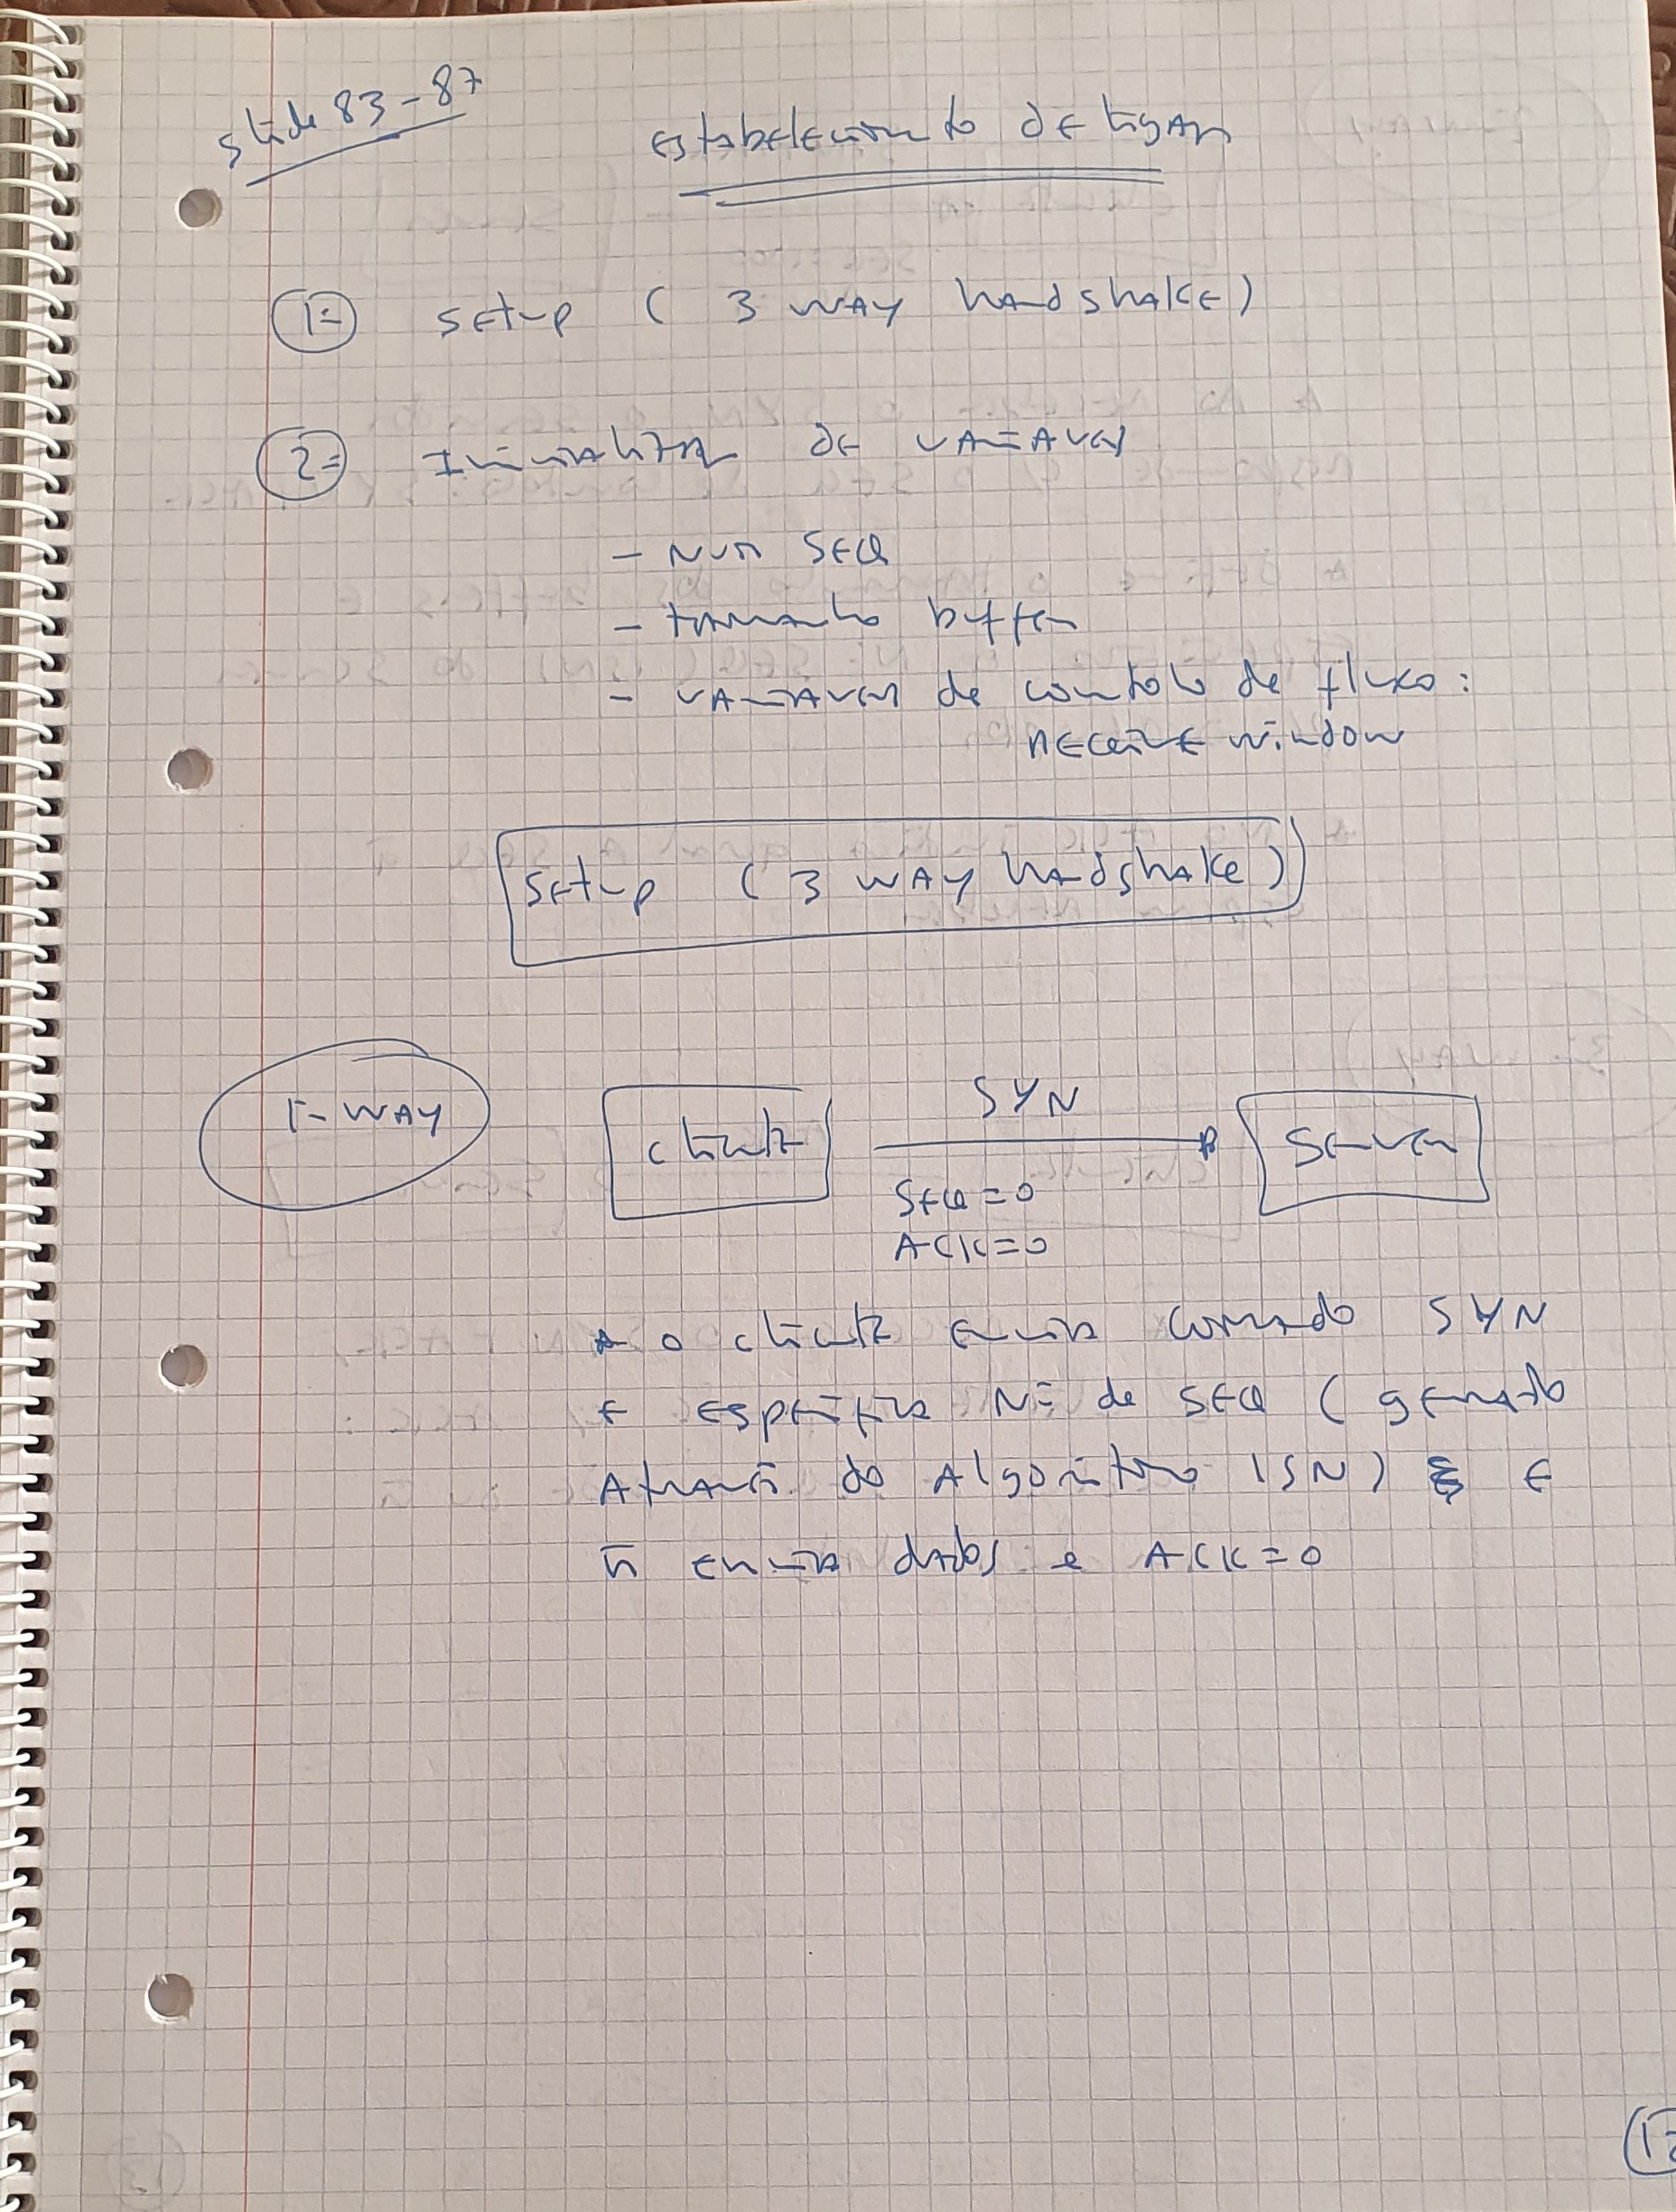 slide 83-87
estabelecimento de ligação
1º setup ( 3 way handshake )
2º Inicialização de variáveis
- num seq
- tamanho buffer
- variáveis de controlo de fluxo :
receive window
setup ( 3 way handshake )
1º way
SYN
cliente
server
seq = 0
ACK = 0
o cliente envia comando SYN
e especifica Nº de seq ( gerado
através do Algoritmo ISN ) e
ñ envia dados e ACK = 0